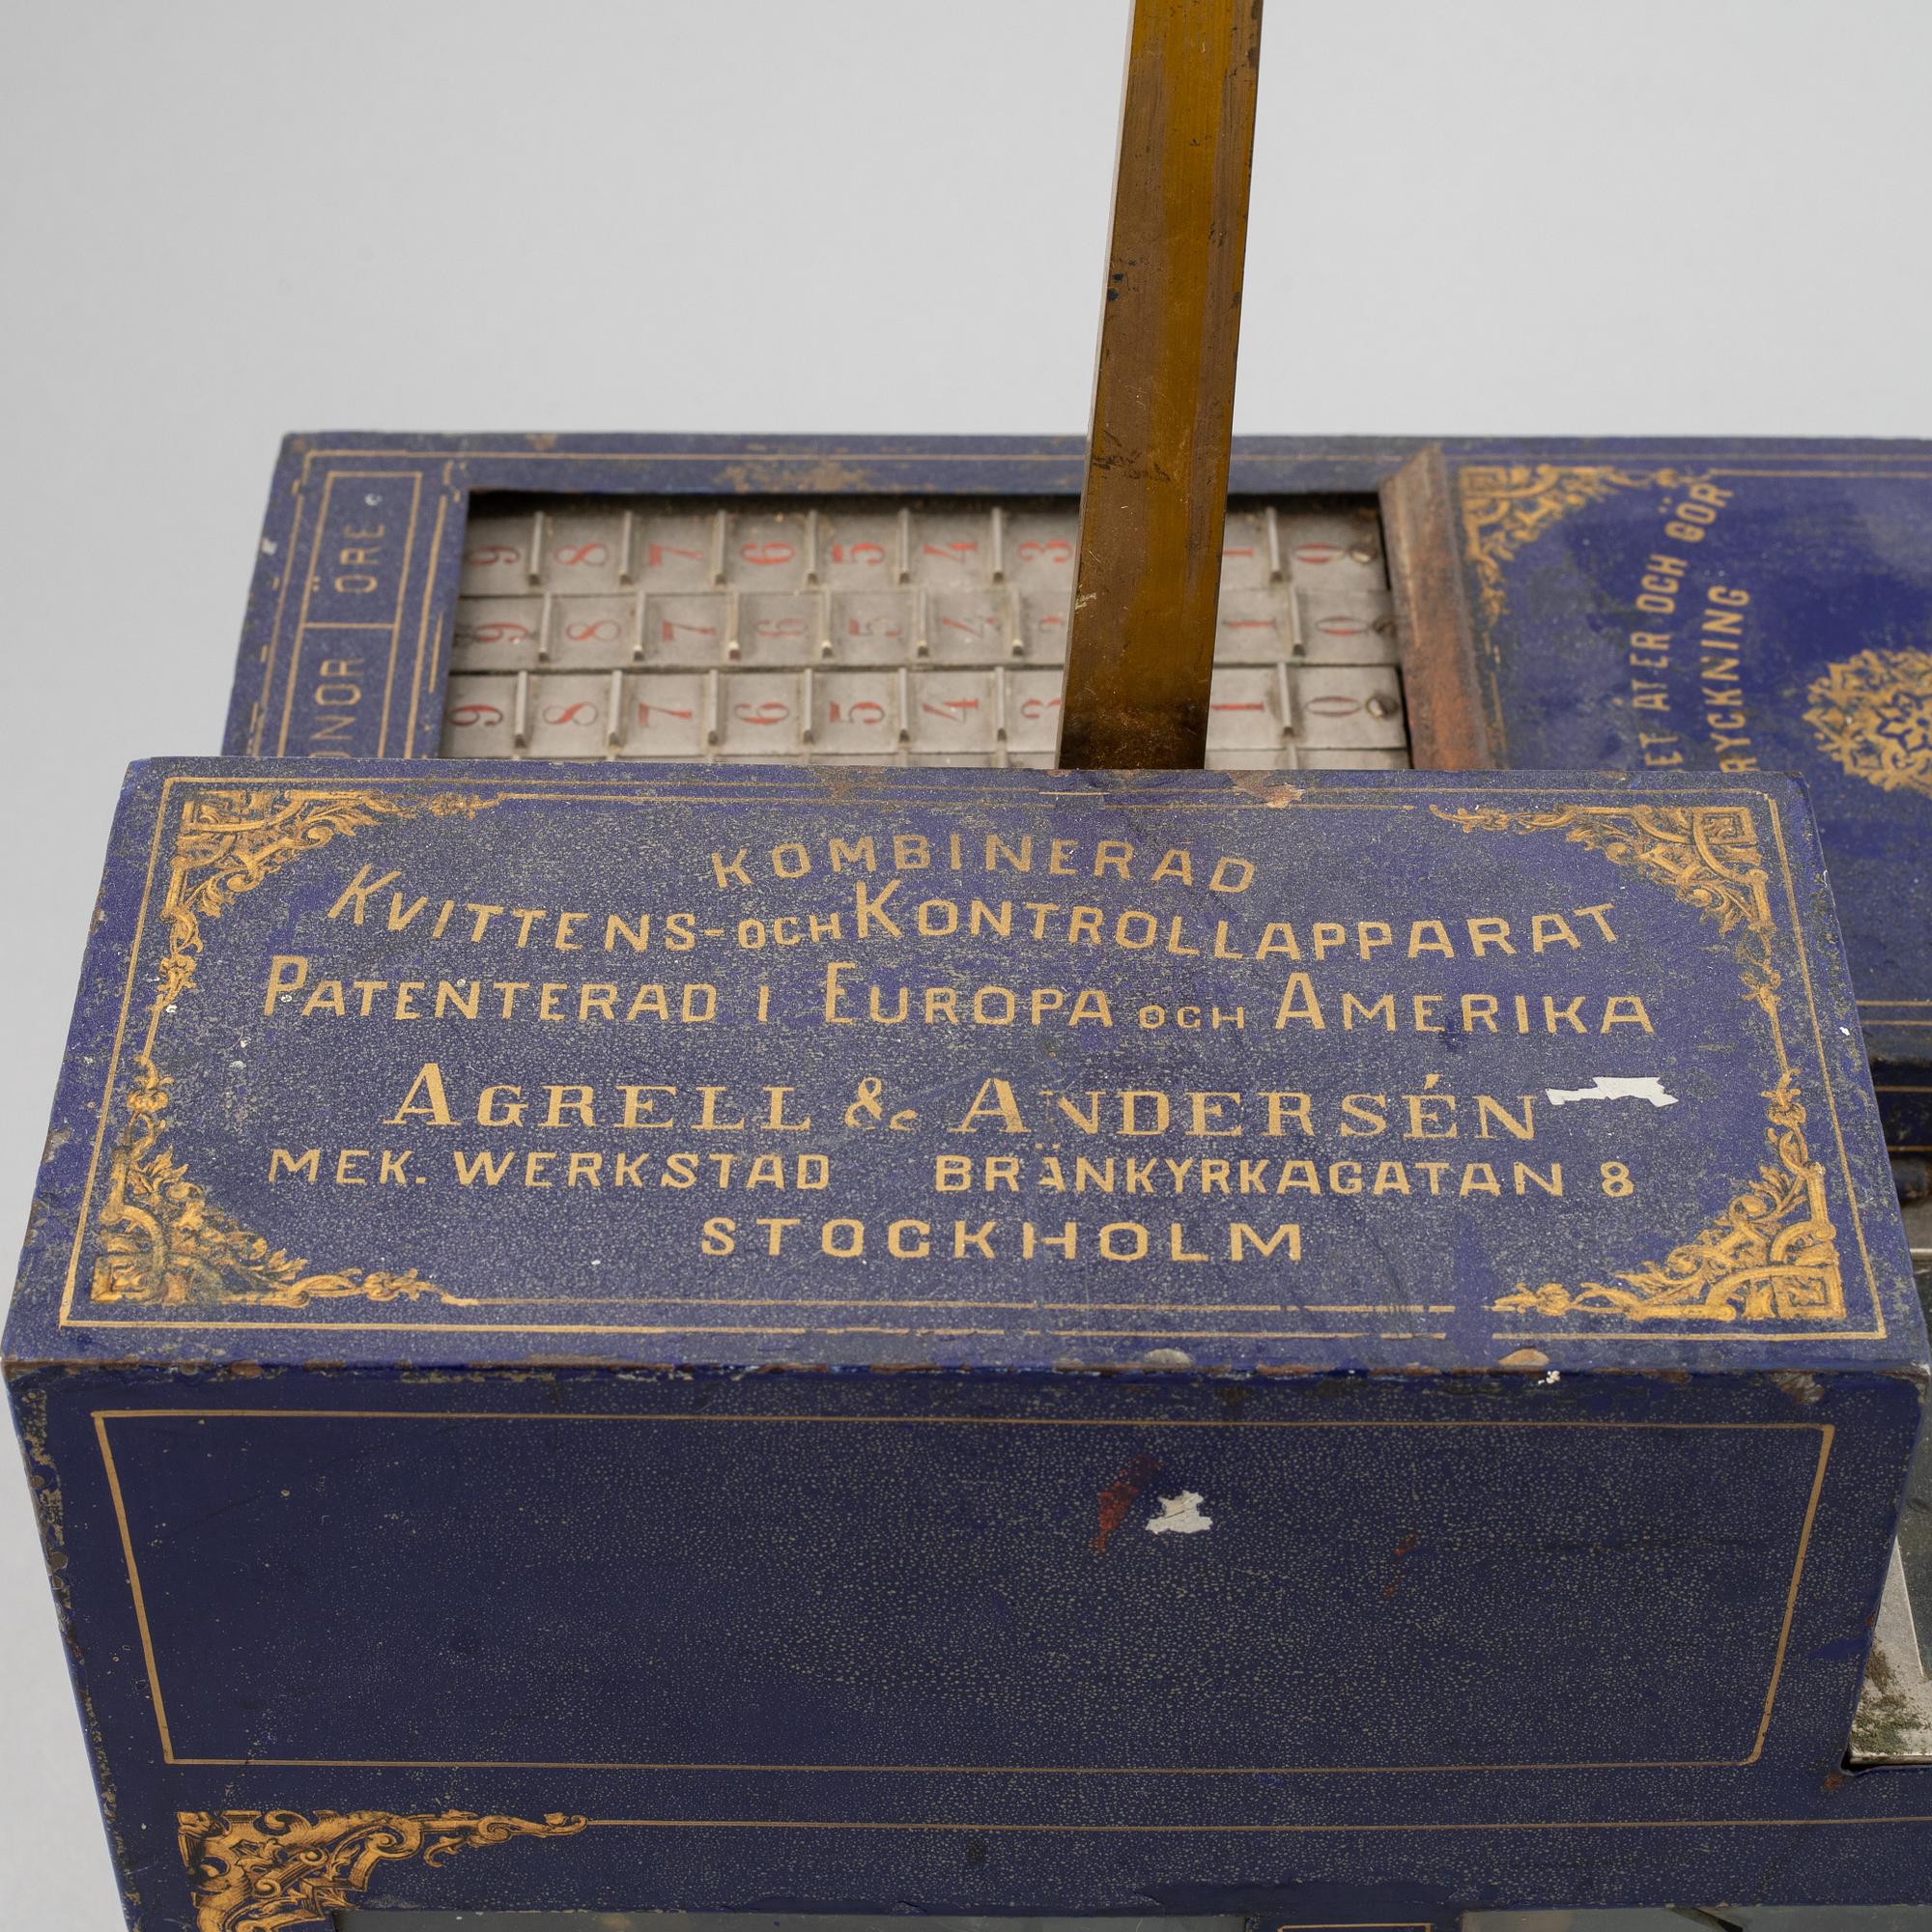 ÖRE
9 8 7 6 5 4 3 1 0
9 8 7 6 5 4 3 1 0
9 8 7 6 5 4 3 1 0
OCH GÖR
KOMBINERAD
KVITTENS-OCH KONTROLLAPPARAT
PATENTERAD I EUROPA OCH AMERIKA
AGRELL & ANDERSÉN
MEK. WERKSTAD BRÄNKYRKAGATAN 8
STOCKHOLM